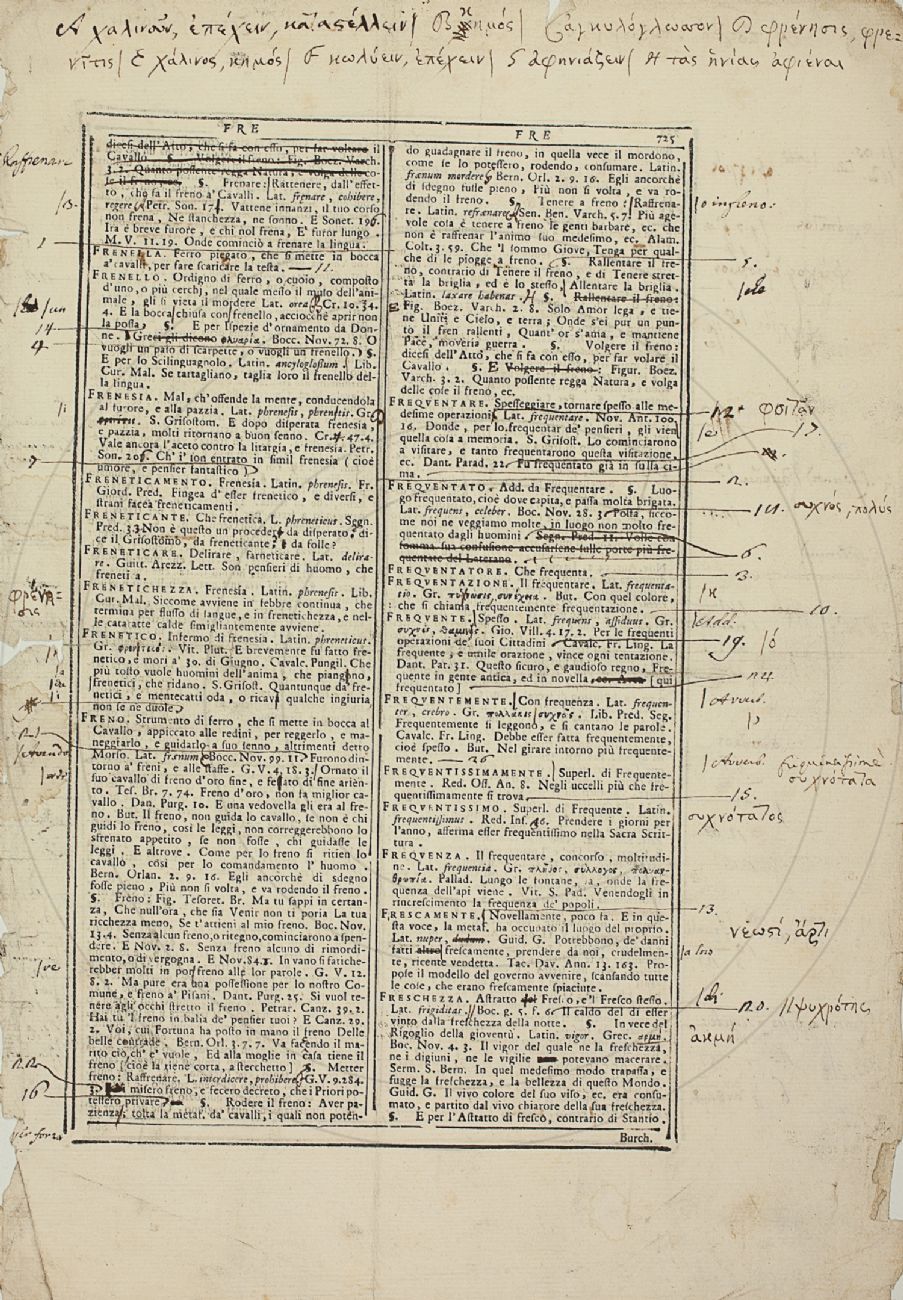 A χαλινοῦν, ἐπέχειν, καταστέλλειν| B κημός| C ἀγκυλόγλωσσον| D φρένησις, φρε=
νῖτις| E χάλινος, κημός| F κωλύειν, ἐπέχειν| G ἀφηνιάζειν| H τὰς ἡνίας ἀφιέναι
FRE
dicesi dell'Atto, che si fa con esso, per far voltare il
Cavallo §. Volgere il freno: Fig. Boez. Varch.
3. 2. Quanto possente regga Natura, e volga delle co-
§. Frenare: Rattenere, dall'effet-
to, che fa il freno a' Cavalli. Lat. frenare, cohibere,
regere Petr. Son. 174. Vattene innanzi, il tuo corso
non frena, Ne stanchezza, ne sonno. E Sonet. 196.
Ira è breve furore, e chi nol frena, E' furor lungo.
M. V. 11. 19. Onde cominciò a frenare la lingua.
FRENELLA. Ferro piegato, che si mette in bocca
a' cavalli, per fare scaricare la testa. — 11.
FRENELLO. Ordigno di ferro, o cuoio, composto
d'uno, o più cerchj, nel quale messo il muso dell'ani-
male, gli si vieta il mordere Lat. orea Cr. 10. 34.
4. E la bocca chiusa con frenello, acciocchè aprir non
la possa §. E per Ispezie d'ornamento da Don-
ne. Greci gli dicono φλυαρία. Bocc. Nov. 72. 8. O
vuogli un paio di scarpette, o vuogli un frenello. §.
E per lo Scilinguagnolo. Latin. ancyloglossum. Lib.
Cur. Mal. Se tartagliano, taglia loro il frenello del-
la lingua.
FRENESIA. Mal, ch'offende la mente, conducendola
al furore, e alla pazzia. Lat. phrenesis, phrenitis. Gr.
S. Grisostom. E dopo disperata frenesia,
e pazzia, molti ritornano a buon senno. Cr. 4. 47. 4.
Vale ancora l'aceto contro la litargia, e frenesia. Petr.
Son. 205. Ch' i' son entrato in simil frenesia (cioè
umore, e pensier fantastico)
FRENETICAMENTO. Frenesia. Latin. phrenesis. Fr.
Giord. Pred. Fingea d'esser frenetico, e diversi, e
strani facea freneticamenti.
FRENETICANTE. Che frenetica. L. phreneticus. Segn.
Pred. 33 Non è questo un procedere da disperato, di-
ce il Grisostomo, da freneticante, da folle?
FRENETICARE. Delirare, farneticare. Lat. delira-
re. Guitt. Arezz. Lett. Son pensieri di huomo, che
freneti a.
FRENETICHEZZA. Frenesia. Latin. phrenesis. Lib.
Cur. Mal. Siccome avviene in febbre continua, che
termina per flusso di sangue, e in frenetichezza, e nel-
le cataratte calde simigliantemente avviene.
FRENETICO. Infermo di frenesia. Latin. phreneticus.
Gr. φρενιτικός. Vit. Plut. E brevemente fu fatto fre-
netico, e morì a' 30. di Giugno. Cavalc. Pungil. Che
più tosto vuole huomini dell'anima, che piangono,
frenetici, che ridano. S. Grisost. Quantunque da' fre-
netici, e mentecatti oda, o ricava qualche ingiuria
non se ne duole
FRENO. Strumento di ferro, che si mette in bocca al
Cavallo, appiccato alle redini, per reggerlo, e ma-
neggiarlo, e guidarlo a suo senno, altrimenti detto
Morso. Lat. frænum Bocc. Nov. 99. 11. Furono din-
torno a' freni, e alle staffe. G. V. 4. 18. 3. Ornato il
suo cavallo di freno d'oro fine, e fessato di fine arièn-
to. Tes. Br. 7. 74. Freno d'oro, non fa miglior ca-
vallo. Dan. Purg. 10. E una vedovella gli era al fre-
no. But. Il freno, non guida lo cavallo, se non è chi
guidi lo freno, così le leggi, non correggerebbono lo
sfrenato appetito, se non fosse, chi guidasse le
leggi. E altrove. Come per lo freno si ritien lo
cavallo, così per lo comandamento l'huomo.
Bern. Orlan. 2. 9. 16. Egli ancorchè di sdegno
fosse pieno, Più non si volta, e va rodendo il freno.
§. Freno: Fig. Tesoret. Br. Ma tu sappi in certan-
za, Che null'ora, che sia Venir non ti poria La tua
ricchezza meno, Se t'attieni al mio freno. Boc. Nov.
13. 4. Senza alcun freno, o ritegno, cominciarono a spen-
dere. E Nov. 2. 8. Senza freno alcuno di rimordi-
mento, o di vergogna. E Nov. 84. 1. In vano si fatiche-
rebber molti in por freno alle lor parole. G. V. 12.
8. 2. Ma pure era una possessione per lo nostro Co-
mune, e freno a' Pisani. Dant. Purg. 25. Si vuol te-
nere agli occhi stretto il freno. Petrar. Canz. 39. 2.
Hai tu 'l freno in balìa de' pensier tuoi? E Canz. 29.
2. Voi, cui Fortuna ha posto in mano il freno Delle
belle contrade. Bern. Orl. 3. 7. 7. Va facendo il ma-
rito ciò, ch' e' vuole, Ed alla moglie in casa tiene il
freno [cioè la tiene corta, a stecchetto] §. Metter
freno: Raffrenare. L. interdicere, prohibere G. V. 9. 284.
3. misero freno, e fecero decreto, che i Priori po-
tessero privare. §. Rodere il freno: Aver pa-
zienza, tolta la metaf. da' cavalli, i quali non poten-
FRE 725
do guadagnare il freno, in quella vece il mordono,
come se lo potessero, rodendo, consumare. Latin.
frænum mordere Bern. Orl. 2. 9. 16. Egli ancorchè
di sdegno fusse pieno, Più non si volta, e va ro-
dendo il freno. §. Tenere a freno: Raffrena-
re. Latin. refrænare Sen. Ben. Varch. 5. 7. Più age-
vole cosa è tenere a freno le genti barbare, ec. che
non è raffrenar l'animo suo medesimo, ec. Alam.
Colt. 3. 59. Che 'l sommo Giove, Tenga per qual-
che dì le piogge a freno. §. Rallentare il fre-
no, contrario di Tenere il freno, e di Tenere stret-
ta la briglia, ed è lo stesso, Allentare la briglia.
Latin. laxare habenas. H §. Rallentare il freno:
Fig. Boez. Varch. 2. 8. Solo Amor lega, e tie-
ne Uniti e Cielo, e terra; Onde s'ei pur un pun-
to il fren rallenti, Quant' or s'ama, e mantiene
Pace, moveria guerra. §. Volgere il freno:
dicesi dell'Atto, che si fa con esse, per far volare il
Cavallo. §. E Volgere il freno: Figur. Boez.
Varch. 3. 2. Quanto possente regga Natura, e volga
delle cose il freno, ec.
FREQVENTARE. Spesseggiare, tornare spesso alle me-
desime operazioni, Lat. frequentare. Nov. Ant. 100.
16. Donde, per lo frequentar de' pensieri, gli vien
quella cosa a memoria. S. Grisost. Lo cominciarono
a visitare, e tanto frequentarono questa visitazione,
ec. Dant. Parad. 22. Fu frequentato già in sulla ci-
ma.
FREQVENTATO. Add. da Frequentare. §. Luo-
go frequentato, cioè dove capita, e passa molta brigata.
Lat. frequens, celeber. Boc. Nov. 28. 3. Posta, sicco-
me noi ne veggiamo molte, in luogo non molto fre-
quentato dagli huomini. Segn. Pred. 11. Volle con
somma sua confusione accusarsene sulle porte più fre-
quentate del Laterano.
FREQVENTATORE. Che frequenta.
FREQVENTAZIONE. Il frequentare. Lat. frequenta-
tio. Gr. πύκνωσις, συνέχεια. But. Con quel colore,
che si chiama frequentemente frequentazione.
FREQVENTE. Spesso. Lat. frequens, assiduus. Gr.
συχνός, θαμινός. Gio. Vill. 4. 17. 2. Per le frequenti
operazioni de' suoi Cittadini. Cavalc. Fr. Ling. La
frequente, e umile orazione, vince ogni tentazione.
Dant. Par. 31. Questo sicuro, e gaudioso regno, Fre-
quente in gente antica, ed in novella [qui
frequentato]
FREQVENTEMENTE. Con frequenza. Lat. frequen-
ter, crebro. Gr. πολλάκις, συχνῶς. Lib. Pred. Seg.
Frequentemente si leggono, e si cantano le parole.
Cavalc. Fr. Ling. Debbe esser fatta frequentemente,
cioè spesso. But. Nel girare intorno più frequente-
mente.
FREQVENTISSIMAMENTE. Superl. di Frequente-
mente. Red. Oss. An. 8. Negli uccelli più che fre-
quentissimamente si trova
FREQVENTISSIMO. Superl. di Frequente. Latin.
frequentissimus. Red. Ins. 46. Prendere i giorni per
l'anno, afferma esser frequentissimo nella Sacra Scrit-
tura.
FREQVENZA. Il frequentare, concorso, moltitudi-
ne. Lat. frequentia. Gr. πλῆθος, σύλλογος, πολυαν-
θρωπία. Pallad. Lungo le fontane, là, onde la fre-
quenza dell'api viene. Vit. S. Pad. Venendogli in
rincrescimento la frequenza de' popoli.
FRESCAMENTE. Novellamente, poco fa. E in que-
sta voce, la metaf. ha occupato il luogo del proprio.
Lat. nuper, Guid. G. Potrebbono, de' danni
fatti frescamente, prendere da noi, crudelmen-
te, ricente vendetta. Tac. Dav. Ann. 13. 163. Pro-
pose il modello del governo avvenire, scansando tutte
le cose, che erano frescamente spiaciute.
FRESCHEZZA. Astratto Fresco, e 'l Fresco stesso.
Lat. frigiditas Boc. g. 5. f. 6. Il caldo del dì esser
vinto dalla freschezza della notte. §. In vece del
Rigoglio della gioventù. Latin. vigor. Grec. ἀκμή.
Boc. Nov. 4. 3. Il vigor del quale ne la freschezza,
ne i digiuni, ne le vigilie potevano macerare.
Serm. S. Bern. In quel medesimo modo trapassa, e
fugge la freschezza, e la bellezza di questo Mondo.
Guid. G. Il vivo colore del suo viso, ec. era consu-
mato, e partito dal vivo chiarore della sua freschezza.
§. E per l'Astratto di fresco, contrario di Stantio.
Burch.
Raffrenare
1
14
4
7
φρένη=
σις
16
5.
12 φοιτᾶν
17
2.
14. συχνός, πολύς
6.
3.
10.
19.
24
26
συχνότατα
15.
συχνότατος
13.
νεωστί, ἄρτι
20. ψυχρότης
ἀκμή